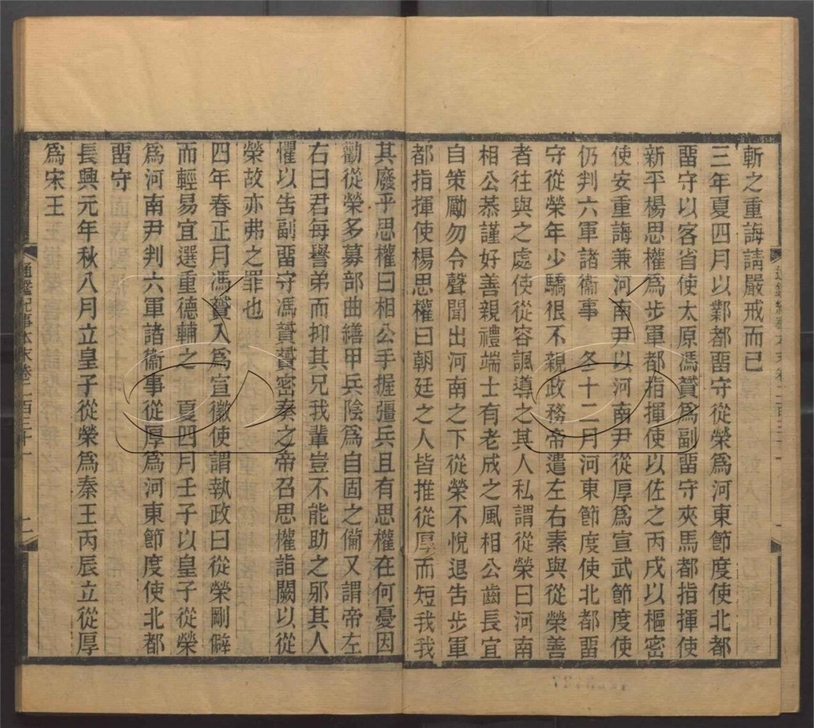 斬之重誨請嚴戒而已
三年夏四月以鄴都畱守從榮為河東節度使北都
畱守以客省使太原馮贇為副畱守夾馬都指揮使
新平楊思權為步軍都指揮使以佐之丙戌以樞密
使安重誨兼河南尹以河南尹從厚為宣武節度使
仍判六軍諸衞事　冬十二月河東節度使北都畱
守從榮年少驕很不親政務帝遣左右素與從榮善
者往與之處使從容諷導之其人私謂從榮曰河南
相公恭謹好善親禮端士有老成之風相公齒長宜
自策勵勿令聲聞出河南之下從榮不悅退告步軍
都指揮使楊思權曰朝廷之人皆推從厚而短我我
其廢乎思權曰相公手握彊兵且有思權在何憂因
勸從榮多募部曲繕甲兵陰為自固之備又謂帝左
右曰君每譽弟而抑其兄我輩豈不能助之邪其人
懼以告副畱守馮贇贇密奏之帝召思權詣闕以從
榮故亦弗之罪也
四年春正月馮贇入為宣徽使謂執政曰從榮剛僻
而輕易宜選重德輔之　夏四月壬子以皇子從榮
為河南尹判六軍諸衞事從厚為河東節度使北都
畱守
長興元年秋八月立皇子從榮為秦王丙辰立從厚
為宋王
通鑑紀事本末卷二百三十一